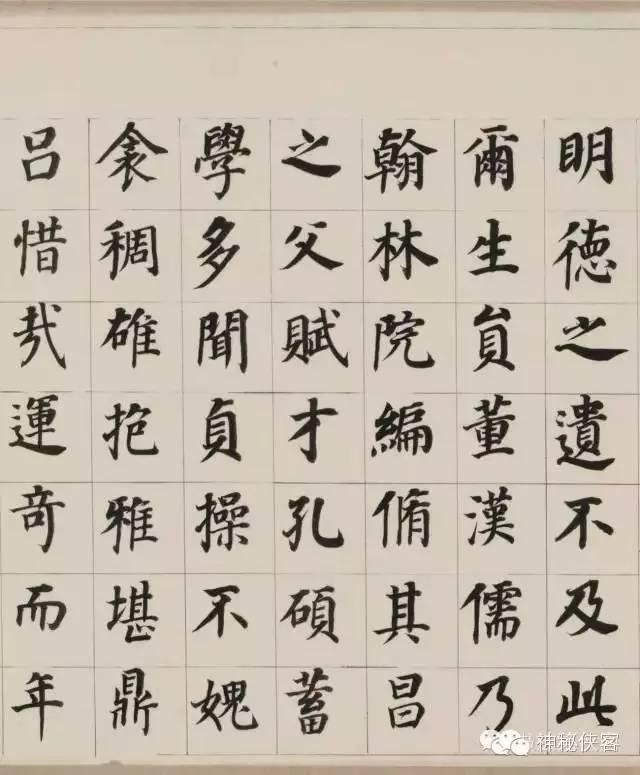 明德之遺不及此
爾生員董漢儒乃
翰林院編脩其昌
之父賦才孔碩蓄
學多聞貞操不媿
衾稠雄抱雅堪鼎
吕惜哉運奇而年
神秘侠客